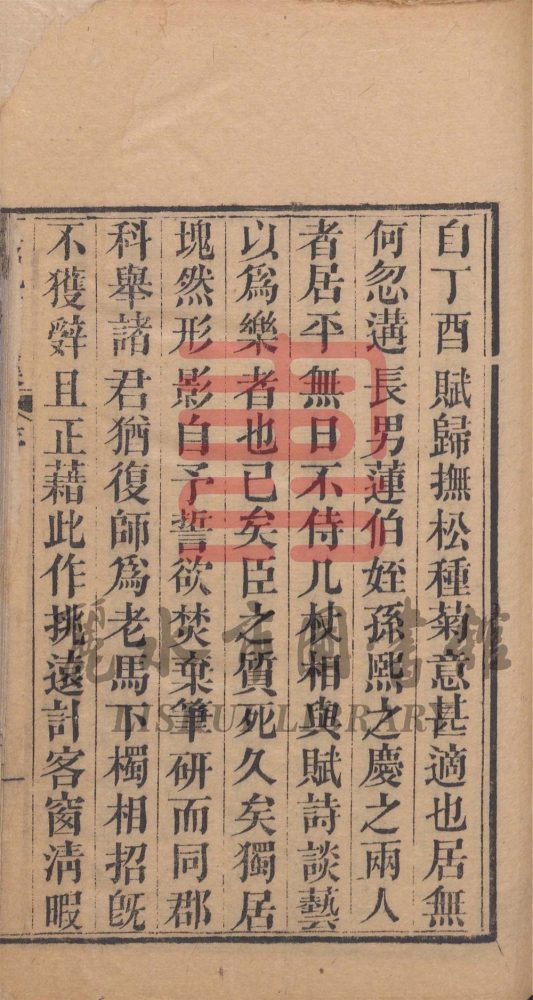 自丁酉賦歸撫松種菊意甚適也居無
何忽遘長男蓮伯姪孫熙之慶之兩人
者居平無日不侍几杖相與賦詩談藝
以爲樂者也已矣臣之質死久矣獨居
塊然形影自予誓欲焚棄筆硏而同郡
科舉諸君猶復師爲老馬下櫉相招旣
不獲辭且正藉此作挑遠計客窗淸暇
一
麗水市圖書館
LISHUI LIBRARY